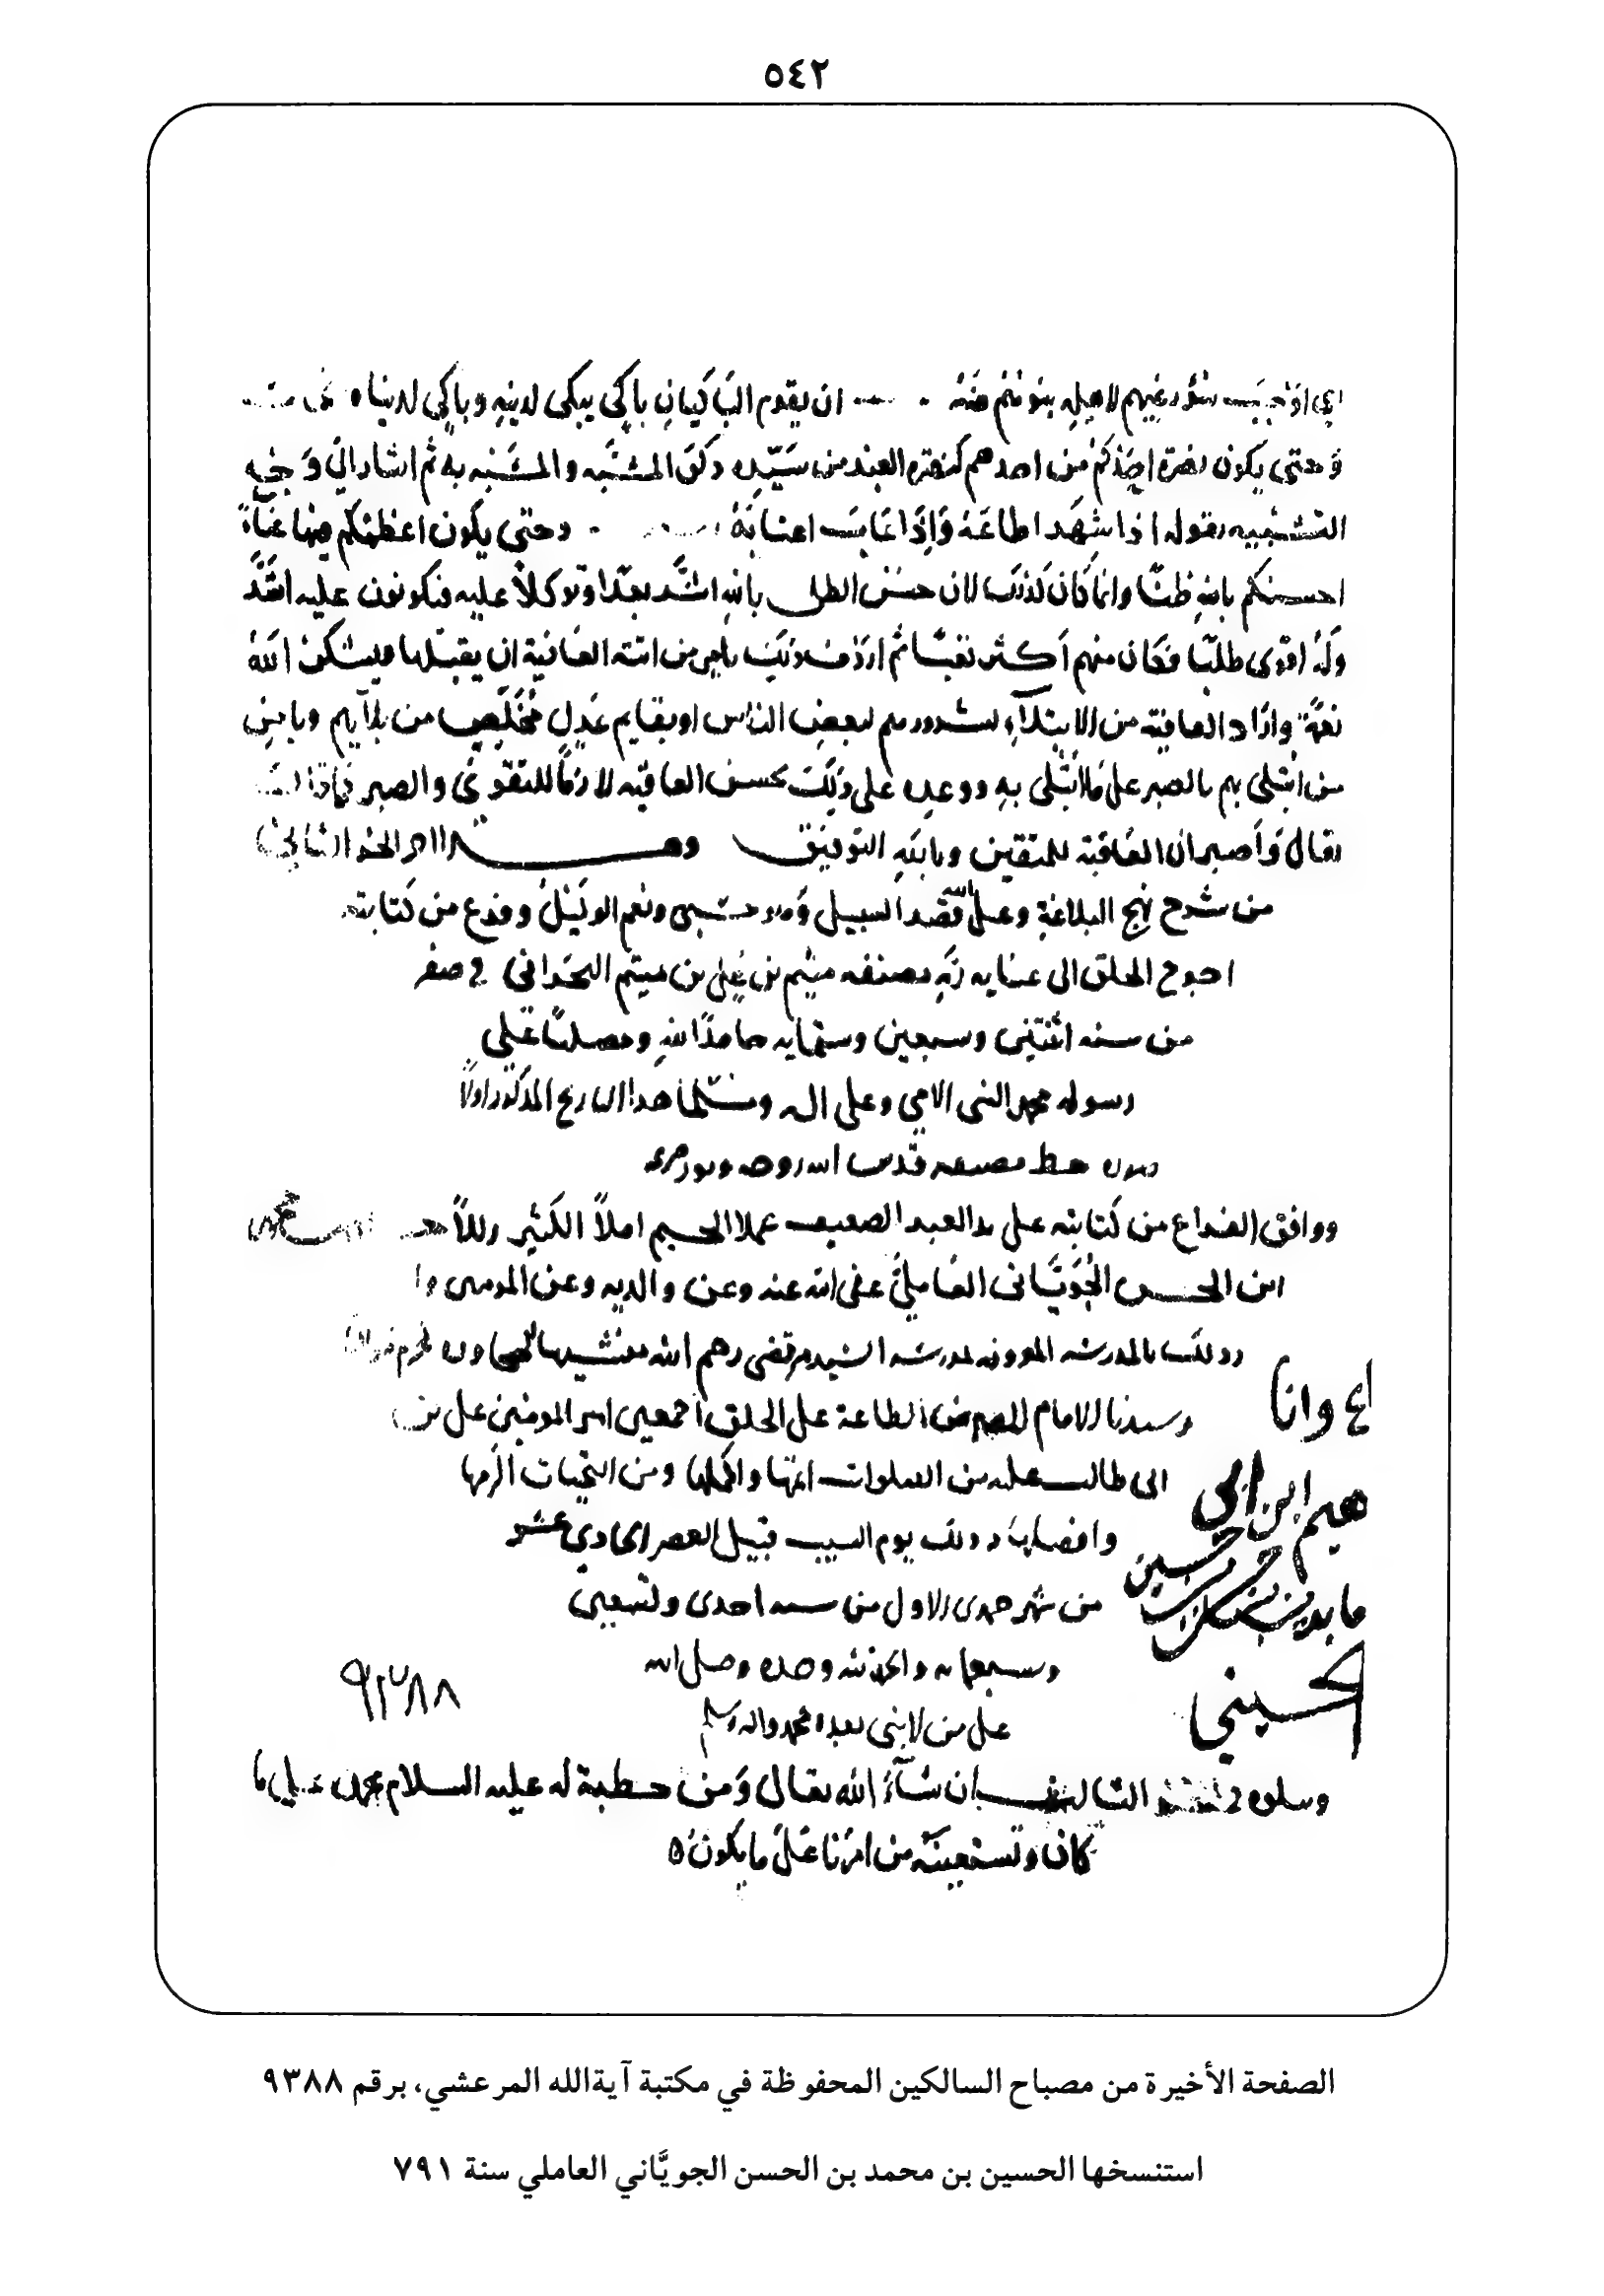 ٥٤٢
ان يقوم الباكيان باكي يبكى لدينه وباكي لدنياه
وحتى يكون نصرة احدكم من احدهم كنصرة العبد من سيده ذكر المشبه والمشبه به ثم اشار الى وجه
التشبيه بقوله اذا شهد اطاعه وإذا غاب اغتابه وحتى يكون اعظمكم فيها عناء
احسنكم بالله ظنا وانما كان كذلك لان حسن الظن بالله اشد بعدا وتوكلا عليه فيكونون عليه اشد
وله اقوى طلبا فكان منهم اكثر تعبا ثم اردف ذلك بامر من اتته العافية ان يقبلها ويشكر الله
نعمة واراد العافية من الابتلاء بشرورهم لبعض الناس او بقايم عدل مخلص من بلآيهم ويامر
من ابتلى بهم بالصبر على ما ابتلى به ووعده على ذلك بحسن العاقبه لازما للتقوى والصبر
تعالى واصبر ان العاقبة للمتقين وبالله التوفيق
من شرح نهج البلاغة وعلى الله قصد السبيل وهو حسبى ونعم الوكيل وفرغ من كتابته
احوج الخلق الى عناية ربه مصنفه ميثم بن علي بن ميثم البحراني في صفر
من سنه اثنتين وسبعين وستمايه حامدا لله ومصليا على
رسوله محمد النبى الامي وعلى اله ومسلما هذا التاريخ المذكور اولا
خط مصنفه قدس الله روحه ونور ضريحه
ووافق الفراغ من كتابته على يد العبد الضعيف عملا الجسيم املا الكثير زللا
ابن الحسن الجويّانى العاملي عفى الله عنه وعن والديه وعن المومنين
وذلك بالمدرسه المعروفه بمدرسه السيد مرتضى رحم الله منشيها
وسيدنا الامام المفترض الطاعة على الخلق اجمعين امير المومنين على بن
ابى طالب عليه من الصلوات اتمها واكملها ومن التحيات الزمها
وافضلها وذلك يوم السبت قبيل العصر الحادي عشر
من شهر جمدى الاول من سنه احدى وتسعين
وسبعمايه والحمد لله وحده وصلى الله
على من لا نبى بعده محمد واله وسلم
الحسيني
٩٣٨٨
وسلوه في الثالث ان شآء الله تعالى ومن خطبة له عليه السلام نحمده على ما
كان ونستعينه من امرنا على ما يكون
الصفحة الأخيرة من مصباح السالكين المحفوظة في مكتبة آيةالله المرعشي، برقم ٩٣٨٨
استنسخها الحسين بن محمد بن الحسن الجويَّاني العاملي سنة ٧٩١